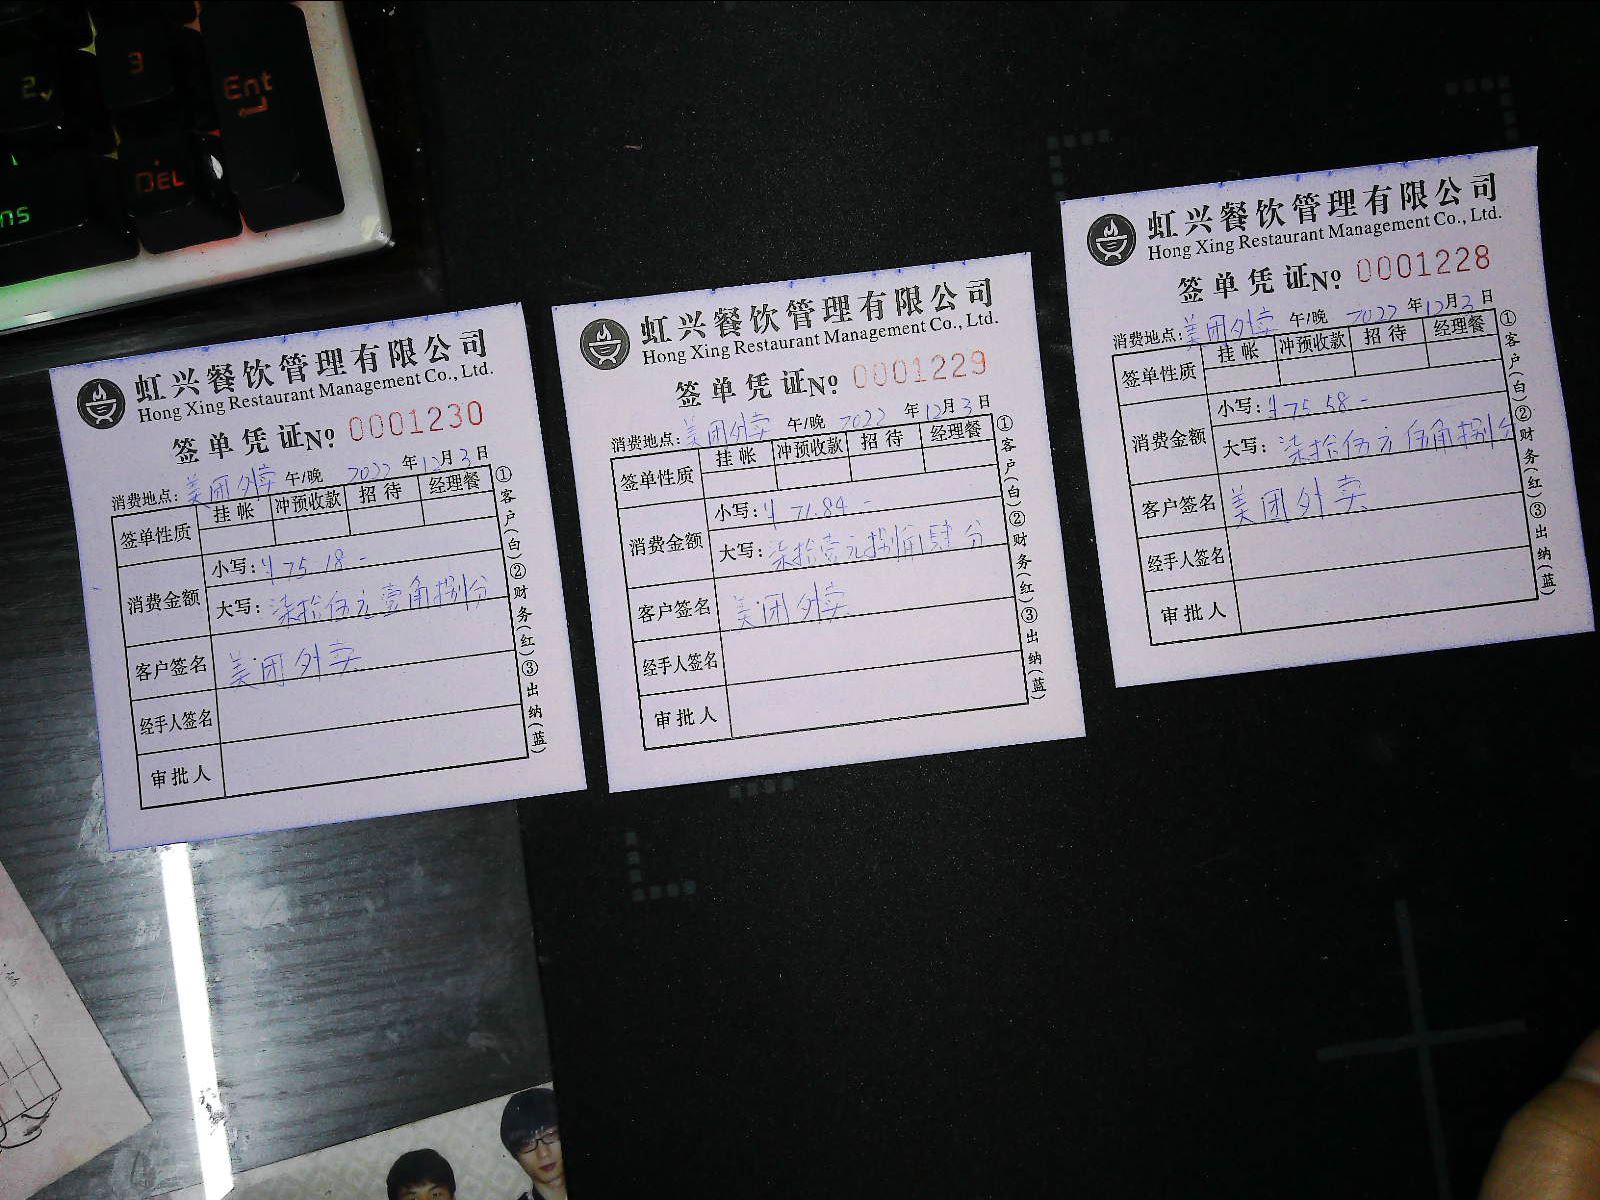 2
3
Ent
DEL
ns
虹兴餐饮管理有限公司
Hong Xing Restaurant Management Co., Ltd.
签单凭证 No 0001230
消费地点: 美团外卖 午/晚 2022 年 12 月 3 日
签单性质 挂帐 冲预收款 招待 经理餐
消费金额
小写: ¥75.18-
大写: 柒拾伍元壹角捌分
客户签名 美团外卖
经手人签名
审批人
①客户(白)②财务(红)③出纳(蓝)
虹兴餐饮管理有限公司
Hong Xing Restaurant Management Co., Ltd.
签单凭证 No 0001229
消费地点: 美团外卖 午/晚 2022 年 12 月 3 日
签单性质 挂帐 冲预收款 招待 经理餐
消费金额
小写: ¥71.84-
大写: 柒拾壹元捌角肆分
客户签名 美团外卖
经手人签名
审批人
①客户(白)②财务(红)③出纳(蓝)
虹兴餐饮管理有限公司
Hong Xing Restaurant Management Co., Ltd.
签单凭证 No 0001228
消费地点: 美团外卖 午/晚 2022 年 12 月 3 日
签单性质 挂帐 冲预收款 招待 经理餐
消费金额
小写: ¥75.58-
大写: 柒拾伍元伍角捌分
客户签名 美团外卖
经手人签名
审批人
①客户(白)②财务(红)③出纳(蓝)